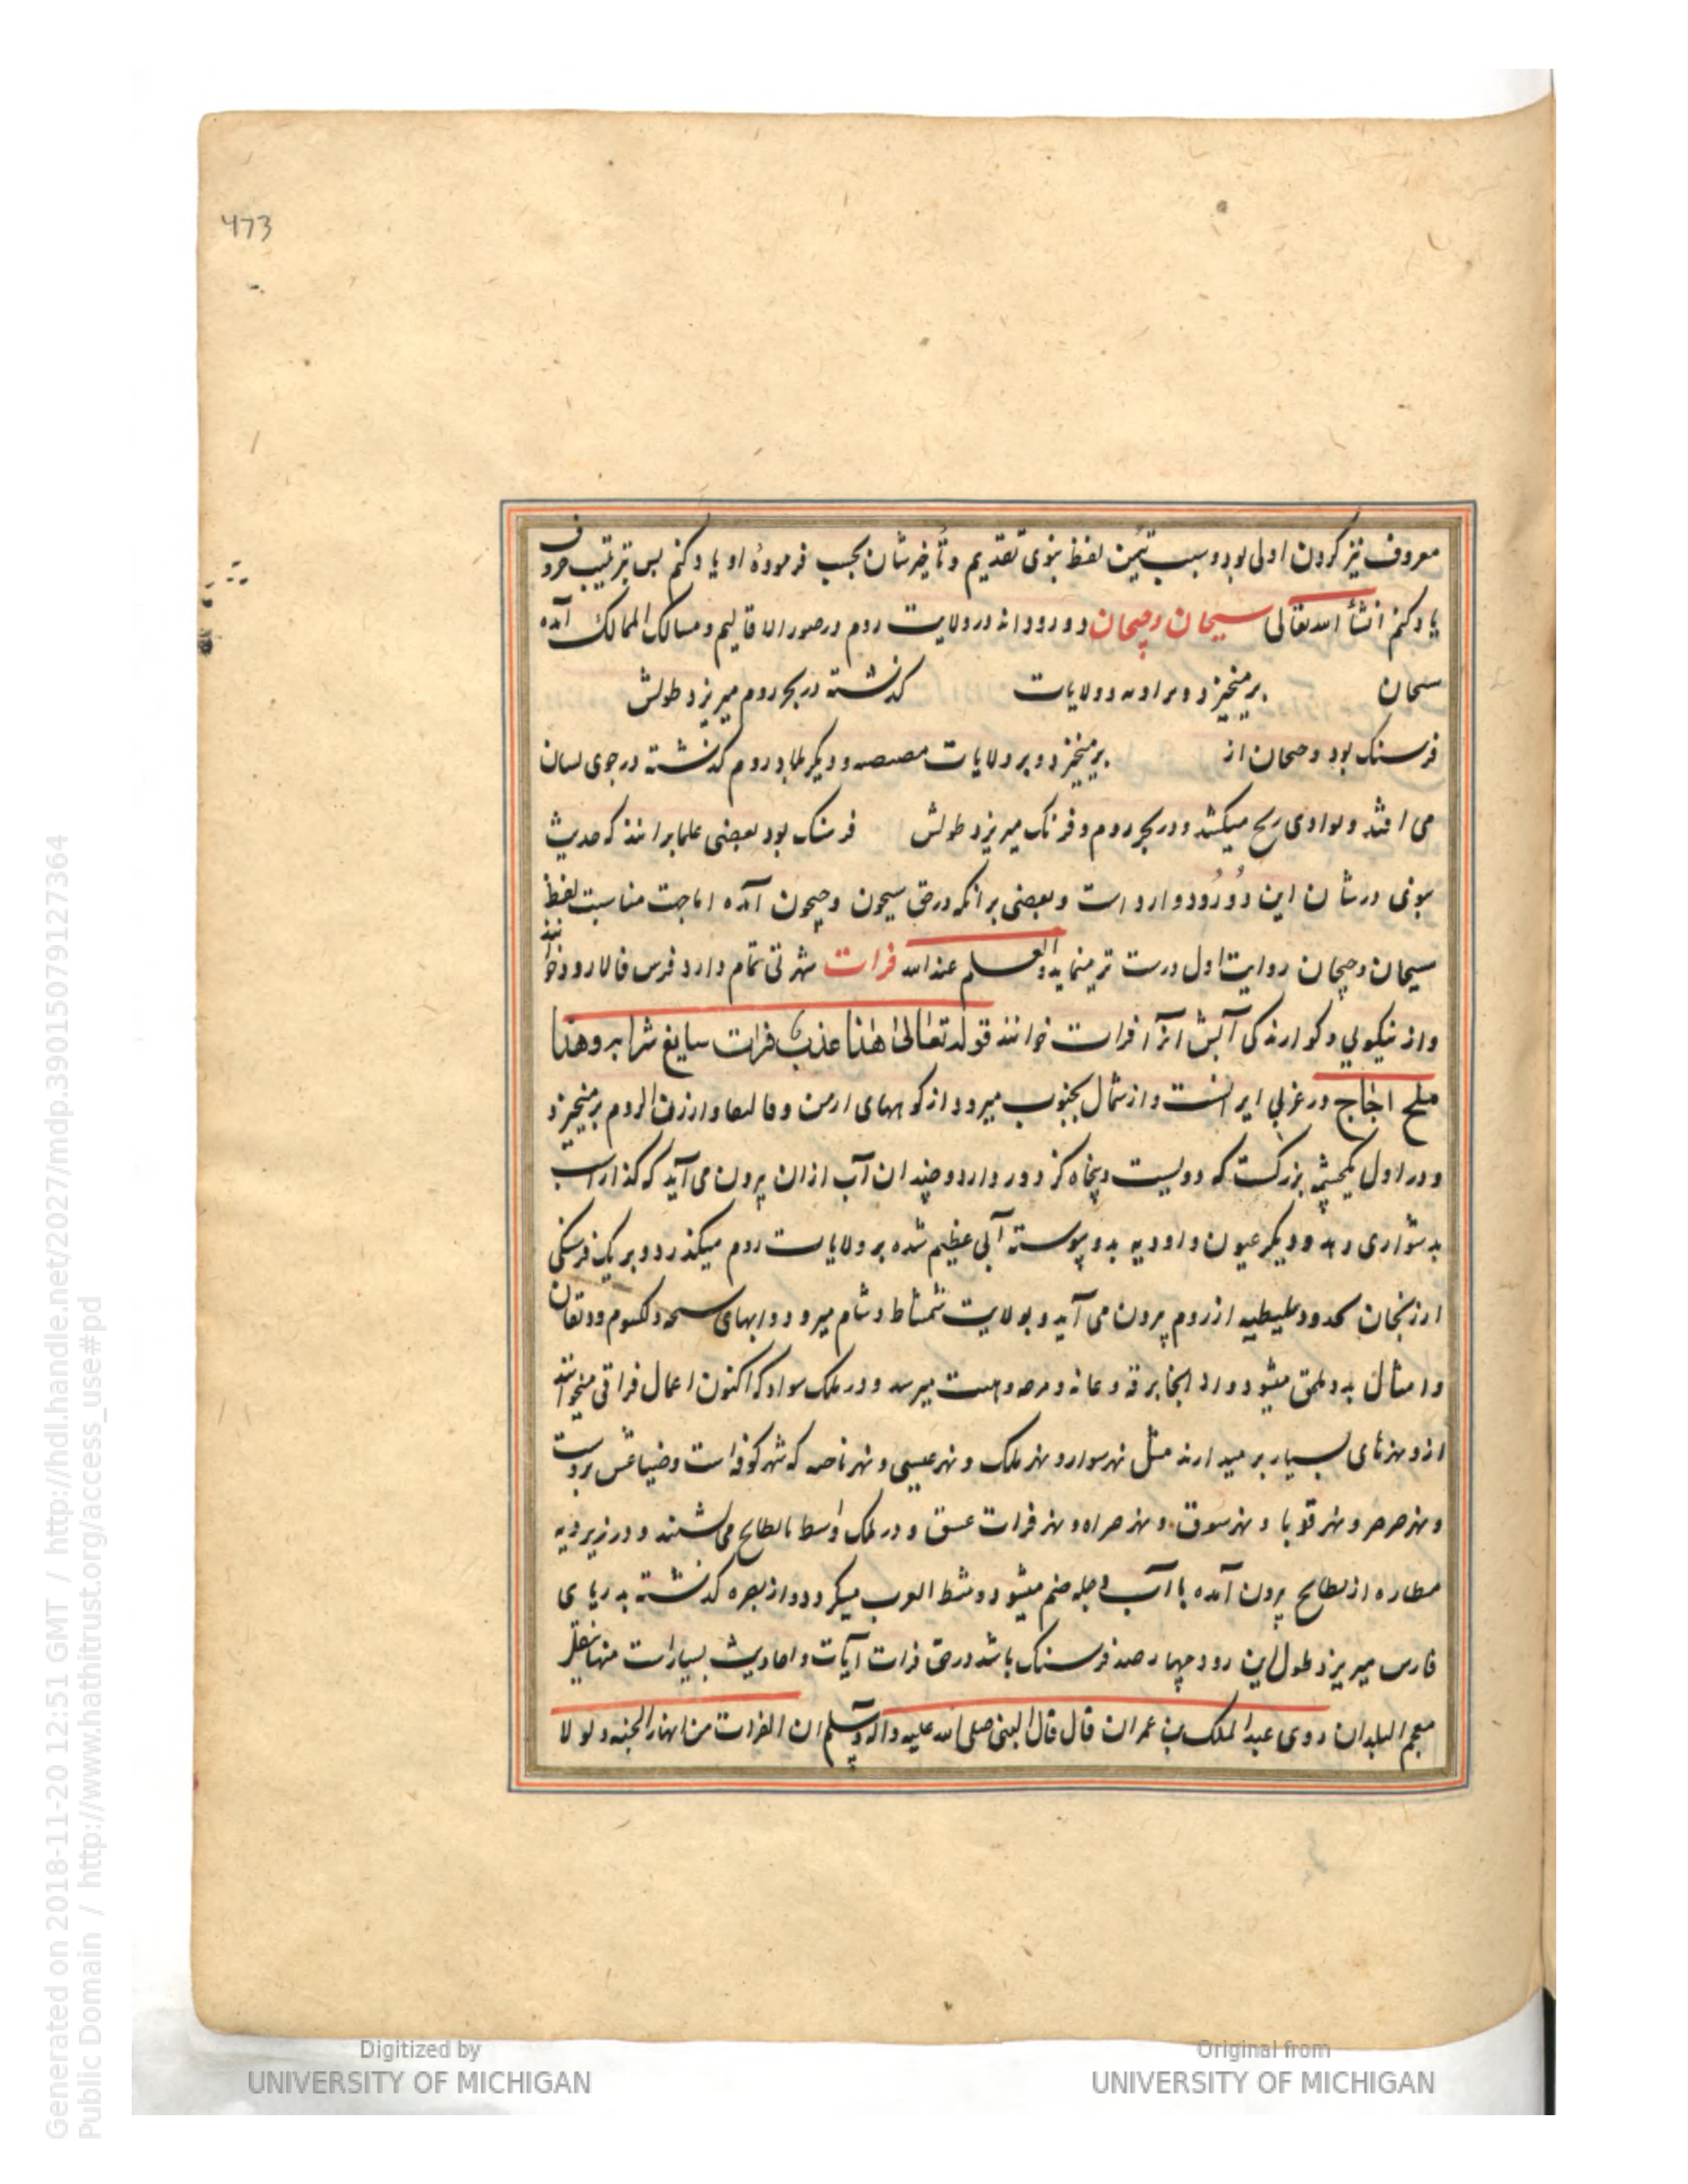 473
معروف نیز کردن اولی بود و سبب تیمن لفظ نبوی تقدیم و تأخیرشان بحسب فرمودۀ او یاد کنم بس بترتیب حروف
یاد کنم انشأ الله تعالی سیحان و جیحان دو رودند در ولایت روم در صور الاقالیم و مسالک الممالک آمده
سحان برمیخیزد و بر ولایات کذشته در بحر روم میریزد طولش
فرسنک بود و جیحان از برمیخیزد و بر ولایات مصیصه و دیکر بلاد روم کذشته در جوی
می افتد و بوادی ریح میکشد و در بحر روم و فرنک میریزد طولش فرسنک بود بعضی علما برانند که حدیث
نبوی در شان این دو رود وارد است و بعضی بر انکه در حق سیحون و جیحون آمده اما جهت مناسبت لفظ
سیحان و جیحان روایت اول درست تر مینماید و العلم عند الله فرات شهرتی تمام دارد فرس فالارود خوانند
و از نیکویی و کوارندکی آبش انرا فرات خوانند قوله تعالی هذا عذب فرات سایغ شرابه و هذا
ملح اجاج در غربی ایرانست و از شمال بجنوب میرود از کوههای ارمن و قالیقلا و ارزن الروم برمیخیزد
و در اول یکچشمه بزرکست که دویست و پنجاه کز دور دارد و چندان آب ازان برون می آید که کذار اسب
بدشواری دهد و دیکر عیون و اودیه بدو پیوسته آبی عظیم شده بر ولایات روم میکذرد و بر یک فرسنکی
ارزنجان بحدود ملیطیه از روم برون می آید و بولایت شمشاط و شام میرود و ابهای سنجه و کیسوم و دیقان
و امثال بدو ملحق میشود و از انجا برقه و عانه و رحبه و هیت میرسد و در ملک سواد که اکنون اعمال فراتی میخوانند
ازو نهرهای بسیار بر میدارند مثل نهر سوار و نهر ملک و نهر عیسی و نهر ناحیه که شهر کوفه است و ضیاعش بروست
و نهر صرصر و نهر قوبا و نهر سوق و نهر صراه و نهر فرات عتیق و در ملک واسط بالبطایح می نشیند و در زیر دیه
مطاره از بطایح برون آمده با آب دجله ضم میشود و شط العرب میکردد و از بصره کذشته بدریای
فارس میریزد طول این رود چهار صد فرسنک باشد در حق فرات آیات و احادیث بسیار است منها نقل
معجم البلدان روی عبد الملک بن عمران قال قال النبی صلی الله علیه و اله و سلم ان الفرات من انهار الجنه و لولا
Digitized by
UNIVERSITY OF MICHIGAN
Original from
UNIVERSITY OF MICHIGAN
Generated on 2018-11-20 12:51 GMT / http://hdl.handle.net/2027/mdp.39015079127364
Public Domain / http://www.hathitrust.org/access_use#pd